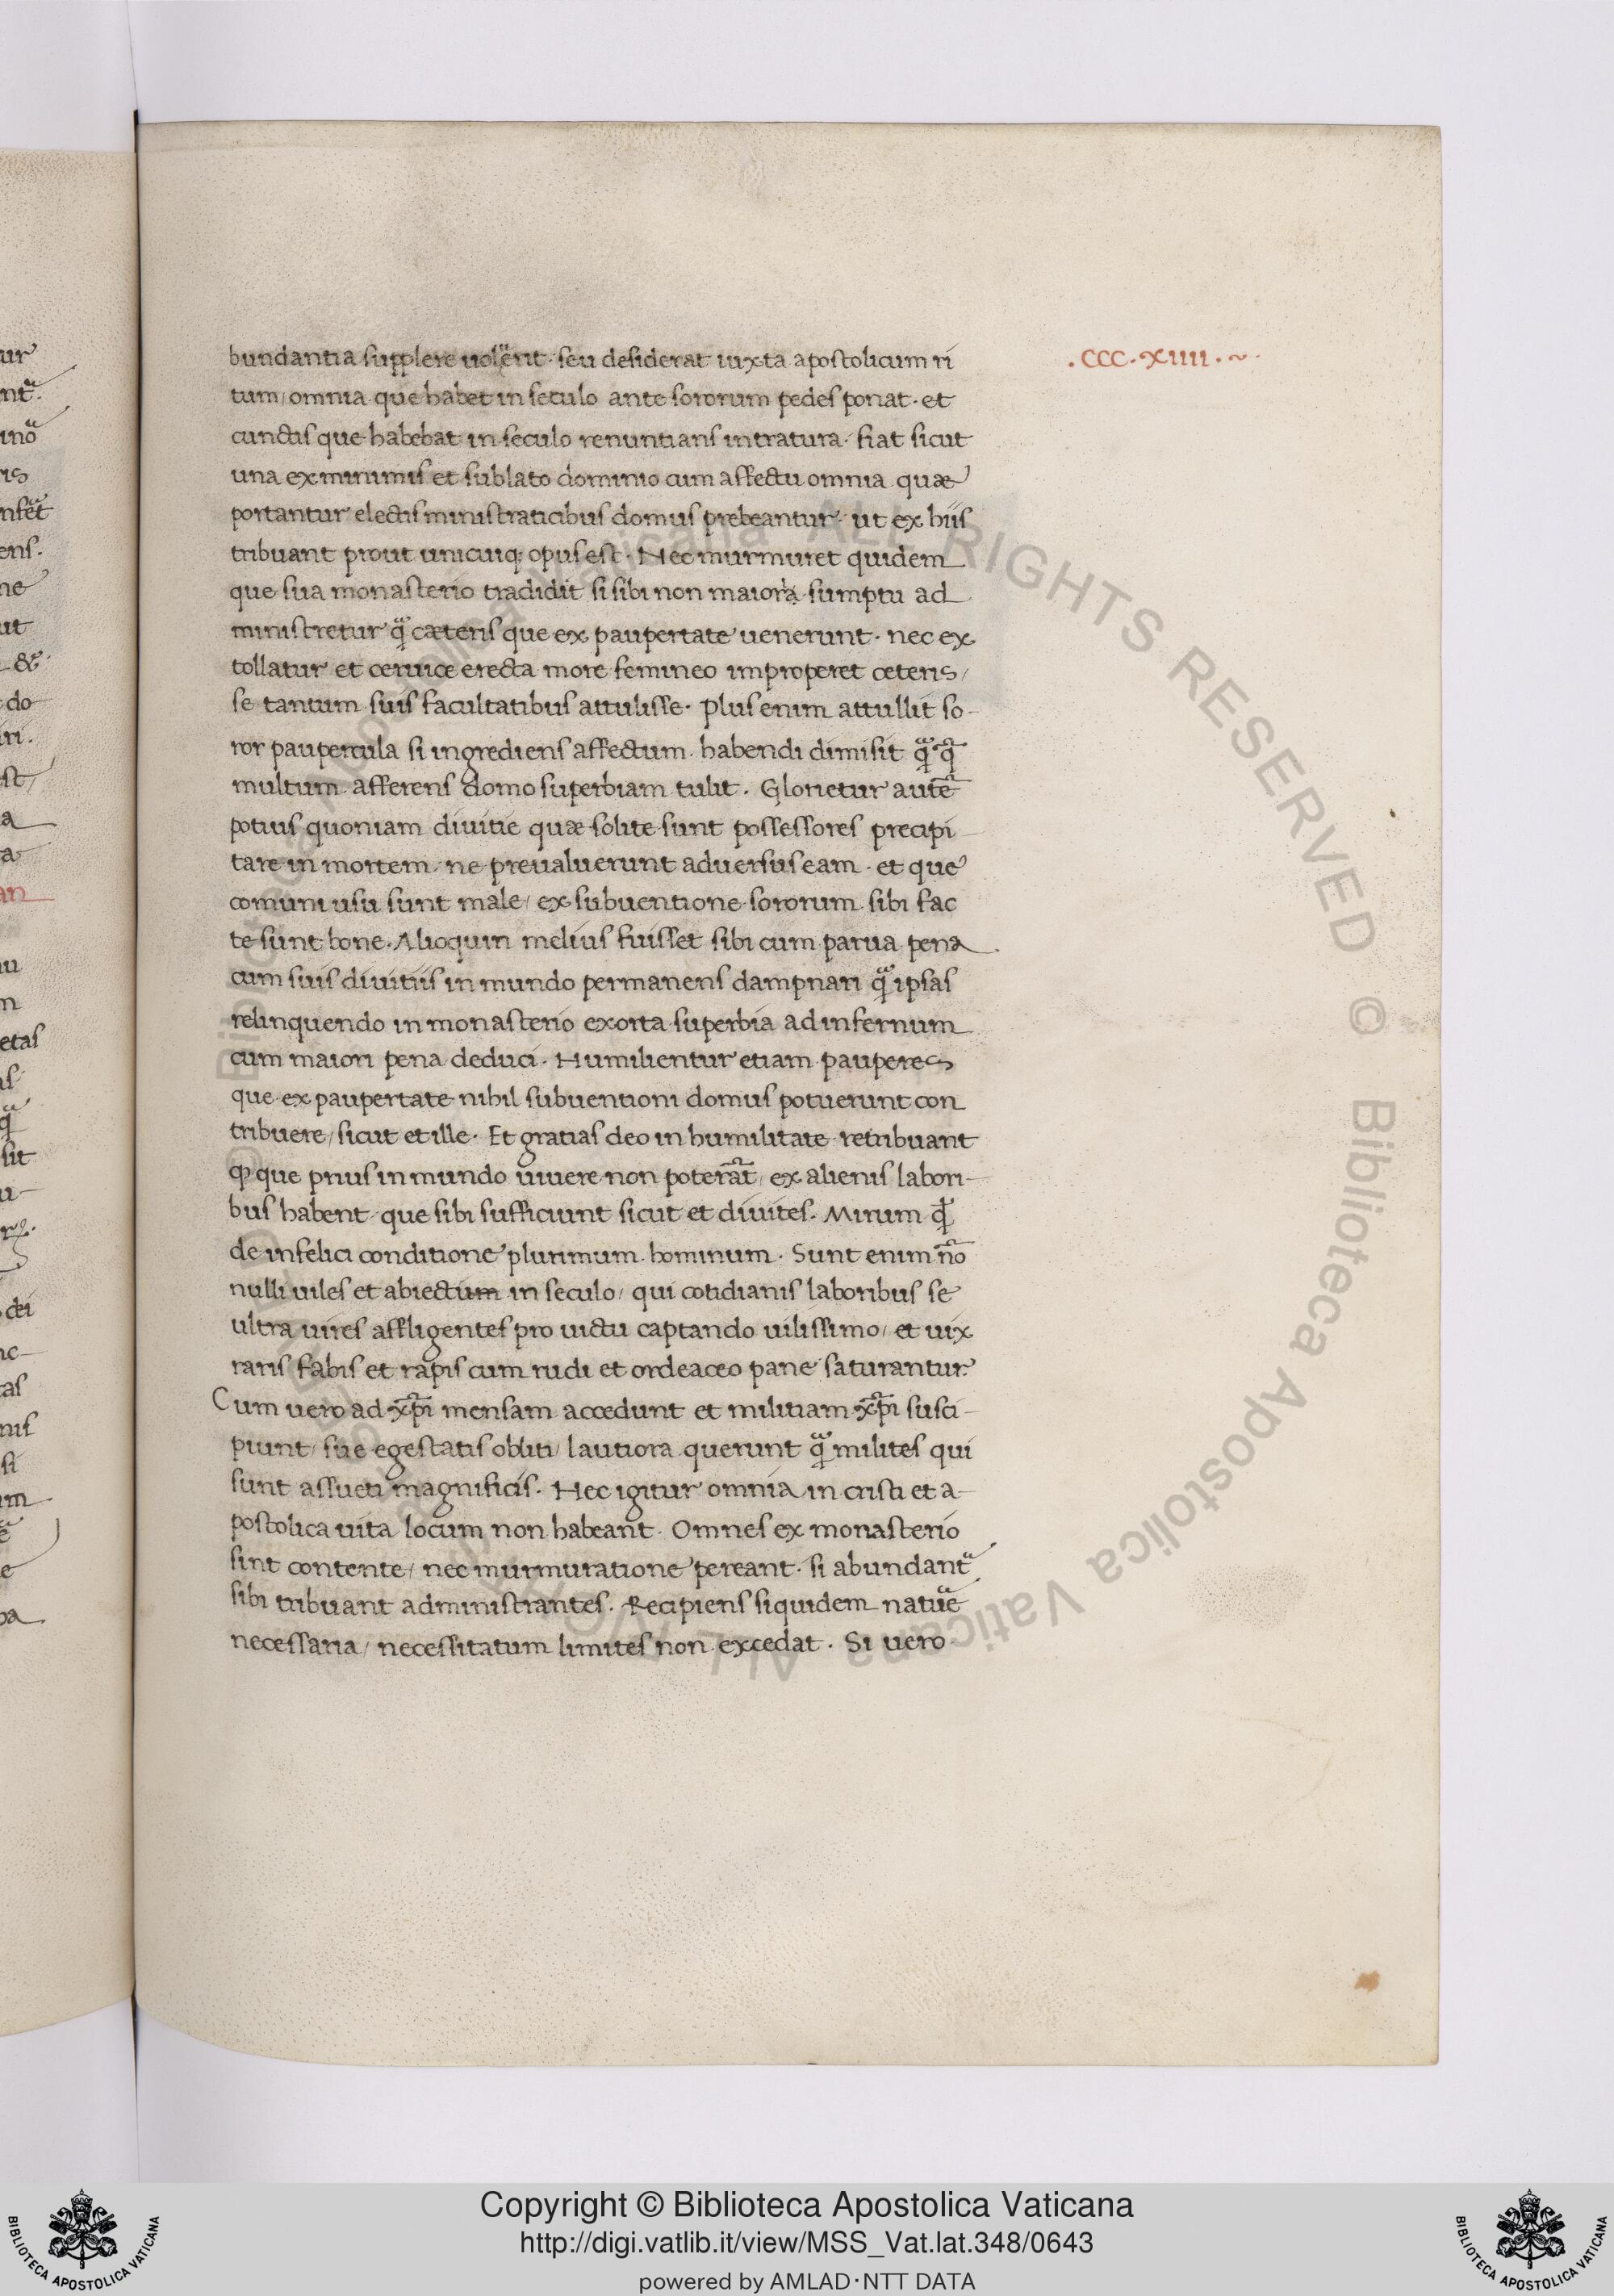 bundantia supplere uoluerit. seu desiderat iuxta apostolicum ri
tum/ omnia que habet in seculo ante sororum pedes ponat. et
cunctis que habebat in seculo renuntians intratura. fiat sicut
una ex minimis et sublato dominio cum affectu omnia quæ
portantur electis ministraticibus domus prebeantur. ut ex hiis
tribuant prout unicuiq; opus est. Nec murmuret quidem
que sua monasterio tradidit si sibi non maiori sumptu ad
ministretur q̃ cæteris que ex paupertate uenerunt. nec ex
tollatur et ceruice erecta more femineo improperet ceteris/
se tantum suis facultatibus attulisse. Plus enim attullit so-
ror paupercula si ingrediens affectum habendi dimisit q̃ q̃
multum afferens domo superbiam tulit. Glorietur autẽ
potius quoniam diuitie quæ solite sunt possessores precipi
tare in mortem. ne preualuerunt aduersus eam. et que
comuni usu sunt male/ ex subuentione sororum sibi fac
te sunt bone. Alioquin melius fuisset sibi cum parua pena
cum suis diuitiis in mundo permanens dampnari q̃ ipsas
relinquendo in monasterio exorta superbia ad infernum
cum maiori pena deduci. Humilientur etiam pauperes
que ex paupertate nihil subuentioni domus potuerunt con
tribuere/ sicut et ille. Et gratias deo in humilitate retribuant
ꝙ que prius in mundo uiuere non poterãt/ ex alienis labori-
bus habent que sibi sufficiunt sicut et diuites. Mirum q̃
de infelici conditione plurimum hominum. Sunt enim nõ
nulli uiles et abiectum in seculo/ qui cotidianis laboribus se
ultra uires affligentes pro uictu captando uilissimo/ et uix
raris fabis et rapis cum rudi et ordeaceo pane saturantur.
Cum uero ad xp̃i mensam accedunt et militiam xp̃i susci-
piunt/ sue egestatis obliti/ lautiora querunt q̃ milites qui
sunt assueti magnificis. Hec igitur omnia in cristi et a-
postolica uita locum non habeant. Omnes ex monasterio
sint contente/ nec murmuratione pereant. si abundant
sibi tribuant administrantes. Recipiens siquidem natuẽ
necessaria/ necessitatum limites non excedat. Si uero
.CCC.XIIII.~.
Copyright © Biblioteca Apostolica Vaticana
http://digi.vatlib.it/view/MSS_Vat.lat.348/0643
powered by AMLAD·NTT DATA
BIBLIOTECA APOSTOLICA VATICANA
BIBLIOTECA APOSTOLICA VATICANA